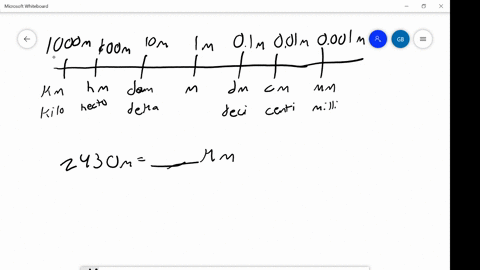 Microsoft Whiteboard
GB
1000m 100m 10m 1m 0.1m 0.01m 0.001m
Km hm dam m dm cm mm
Kilo hecto deka deci centi milli
2430m = ___ Km